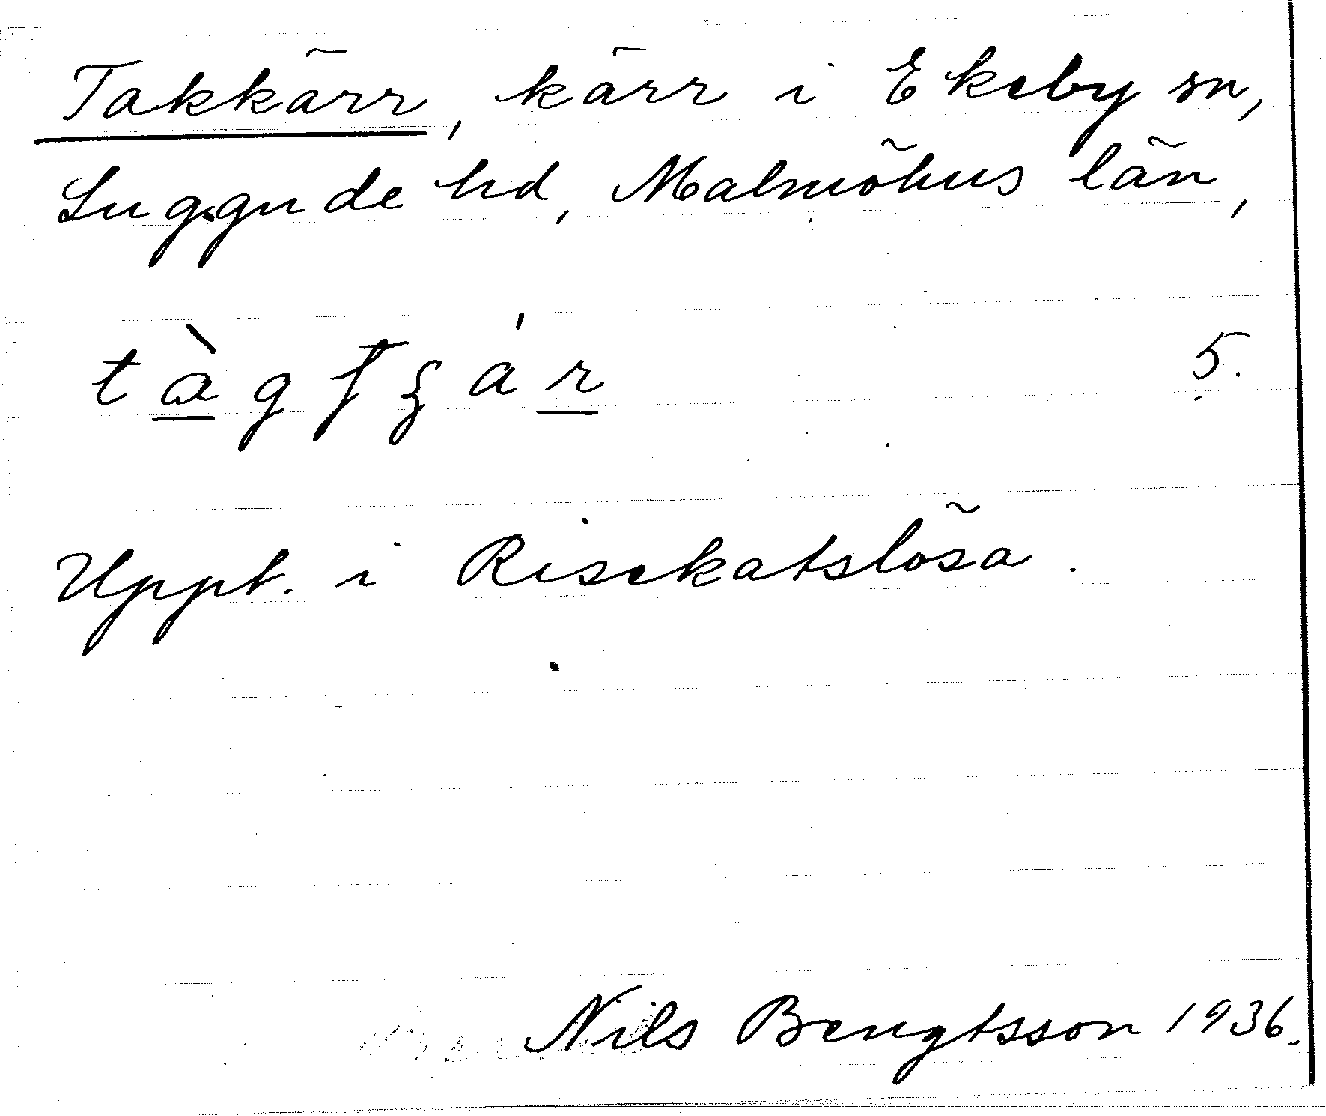 Takkärr, kärr i Ekeby sn,
Luggude hd, Malmöhus län,
5.
Uppt. i Risekatslösa.
Nils Bengtsson 1936.